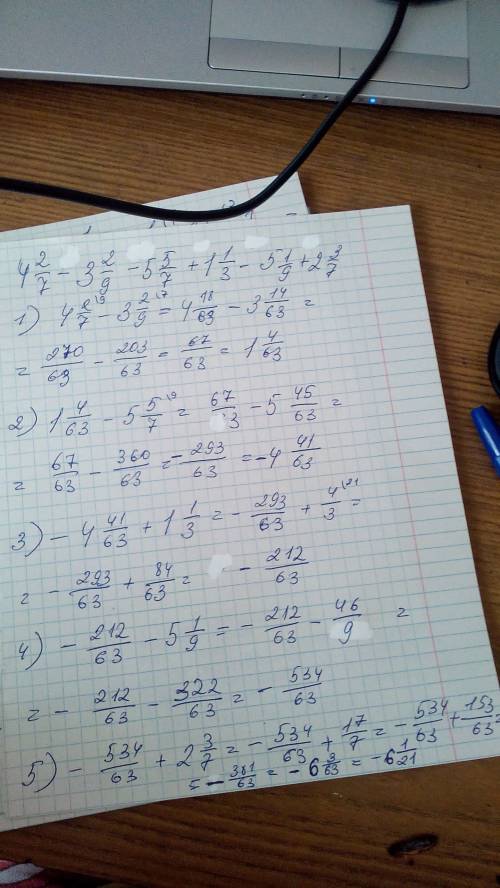 4 2/7 - 3 2/9 - 5 5/7 + 1 1/3 - 5 1/9 + 2 3/7
1) 4 2/7 \9 - 3 2/9 \7 = 4 18/63 - 3 14/63 =
= 270/63 - 203/63 = 67/63 = 1 4/63
2) 1 4/63 - 5 5/7 \9 = 67/ 3 - 5 45/63 =
= 67/63 - 360/63 = - 293/63 = - 4 41/63
3) - 4 41/63 + 1 1/3 = - 293/63 + 4/3 \21 =
= - 293/63 + 84/63 = - 212/63
4) - 212/63 - 5 1/9 = - 212/63 - 46/9 =
= - 212/63 - 322/63 = - 534/63
5) - 534/63 + 2 3/7 = - 534/63 + 17/7 = - 534/63 + 153/63 =
= - 381/63 = - 6 3/63 = - 6 1/21